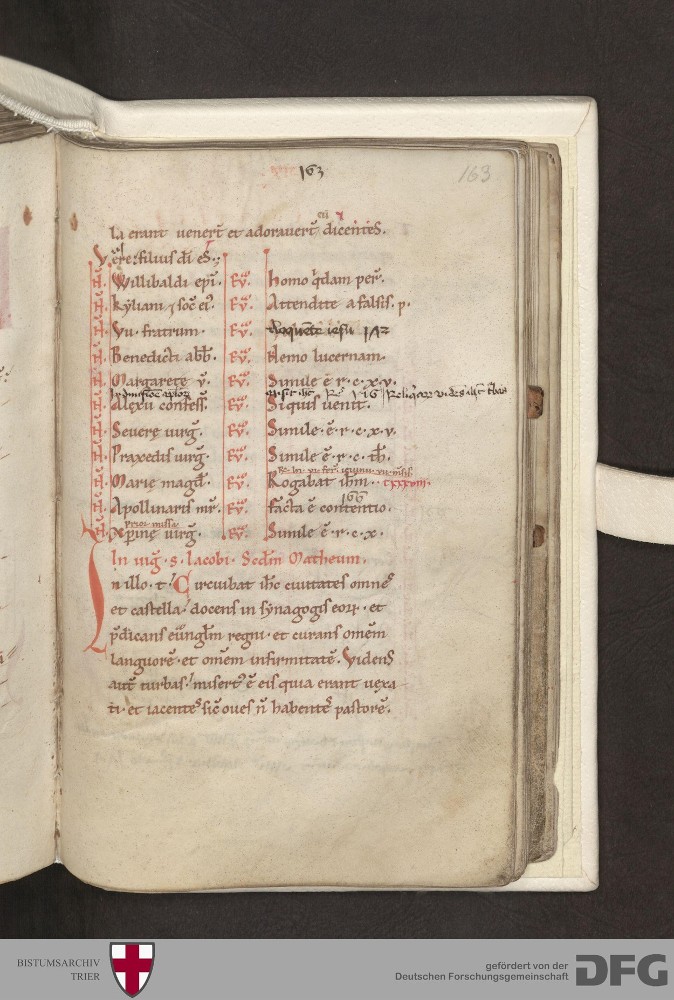 163
163
la erant venerūt et adoraverūt dicentes.
Vere filius dī es.
H. Willibaldi epī. Ev̄. Homo qdam per.
H. Kyliani ⁊ soc̄ ei'. Ev̄. Attendite a falsis. p.
H. Vii fratrum. Ev̄. iesu
H. Benedicti abb̄. Ev̄. Nemo lucernam.
H. Margarete v̄. Ev̄. Simile ē r. c. x. v.
H. Alexii confess̄. Ev̄. Siquis venit.
H. Severe virḡ. Ev̄. Simile. ē. r. c. x. v.
H. Praxedis virḡ. Ev̄. Simile ē. r. c. th̄.
H. Marie magd̄. Ev̄. Rogabat ih̄m.
H. Apollinaris mr̄. Ev̄. facta ē contentio.
166
prior missa
H. Xpine virḡ. Ev̄. Simile ē. r. c. x.
In viḡ. s. Iacobi. Scd̄m Matheum.
In illo. t. Circuibat ihc civitates omnes
et castella. docens in synagogis eorꝝ. et
p̄dicans evanglm regni. et curans omēm
languorē. et omēm infirmitatē. Videns
autē turbas. misert' ē eis quia erant vexa-
ti. et iacentes sic̄ oves n̄ habentes pastorē.
BISTUMSARCHIV
TRIER
gefördert von der
Deutschen Forschungsgemeinschaft
DFG